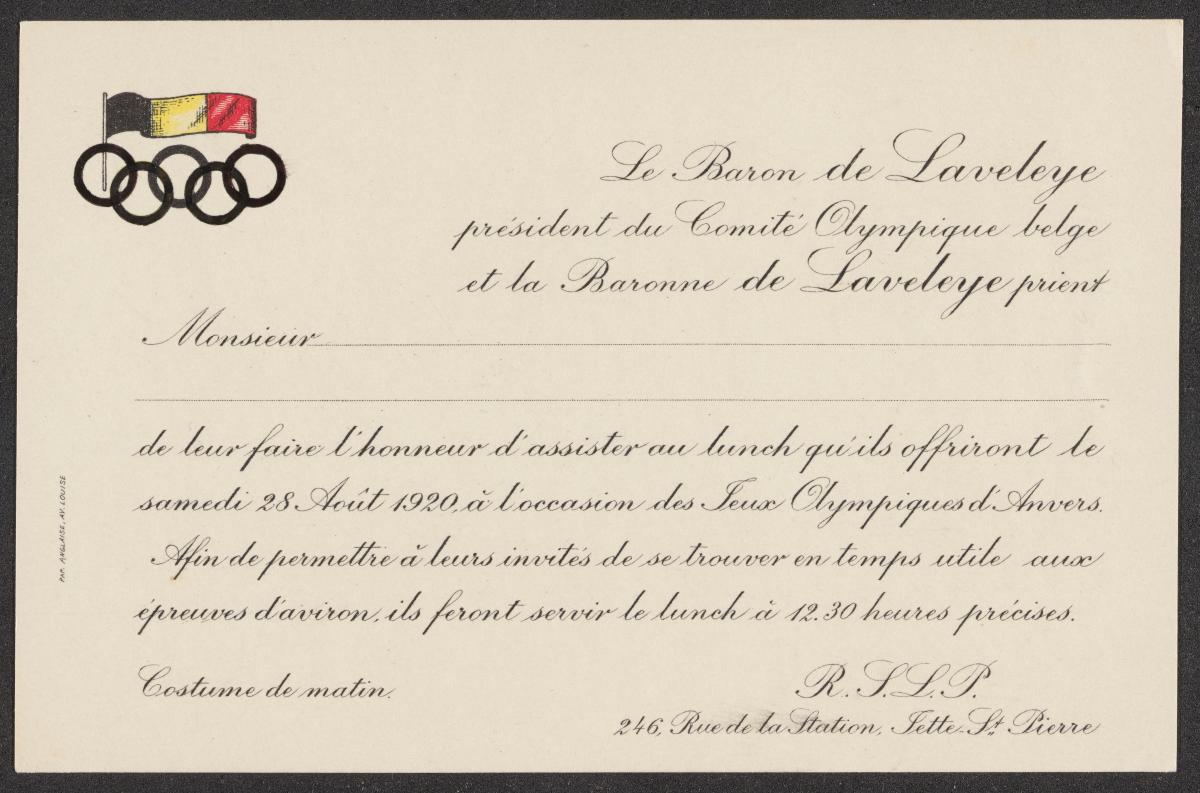 Le Baron de Laveleye
président du Comité Olympique belge
et la Baronne de Laveleye prient
Monsieur
de leur faire l'honneur d'assister au lunch qu'ils offriront le
samedi 28 Août 1920, à l'occasion des Jeux Olympiques d'Anvers.
Afin de permettre à leurs invités de se trouver en temps utile aux
épreuves d'aviron, ils feront servir le lunch à 12.30 heures précises.
Costume de matin.
R. S. L. P.
246, Rue de la Station, Jette-St Pierre
PAP. ANGLAISE, AV. LOUISE